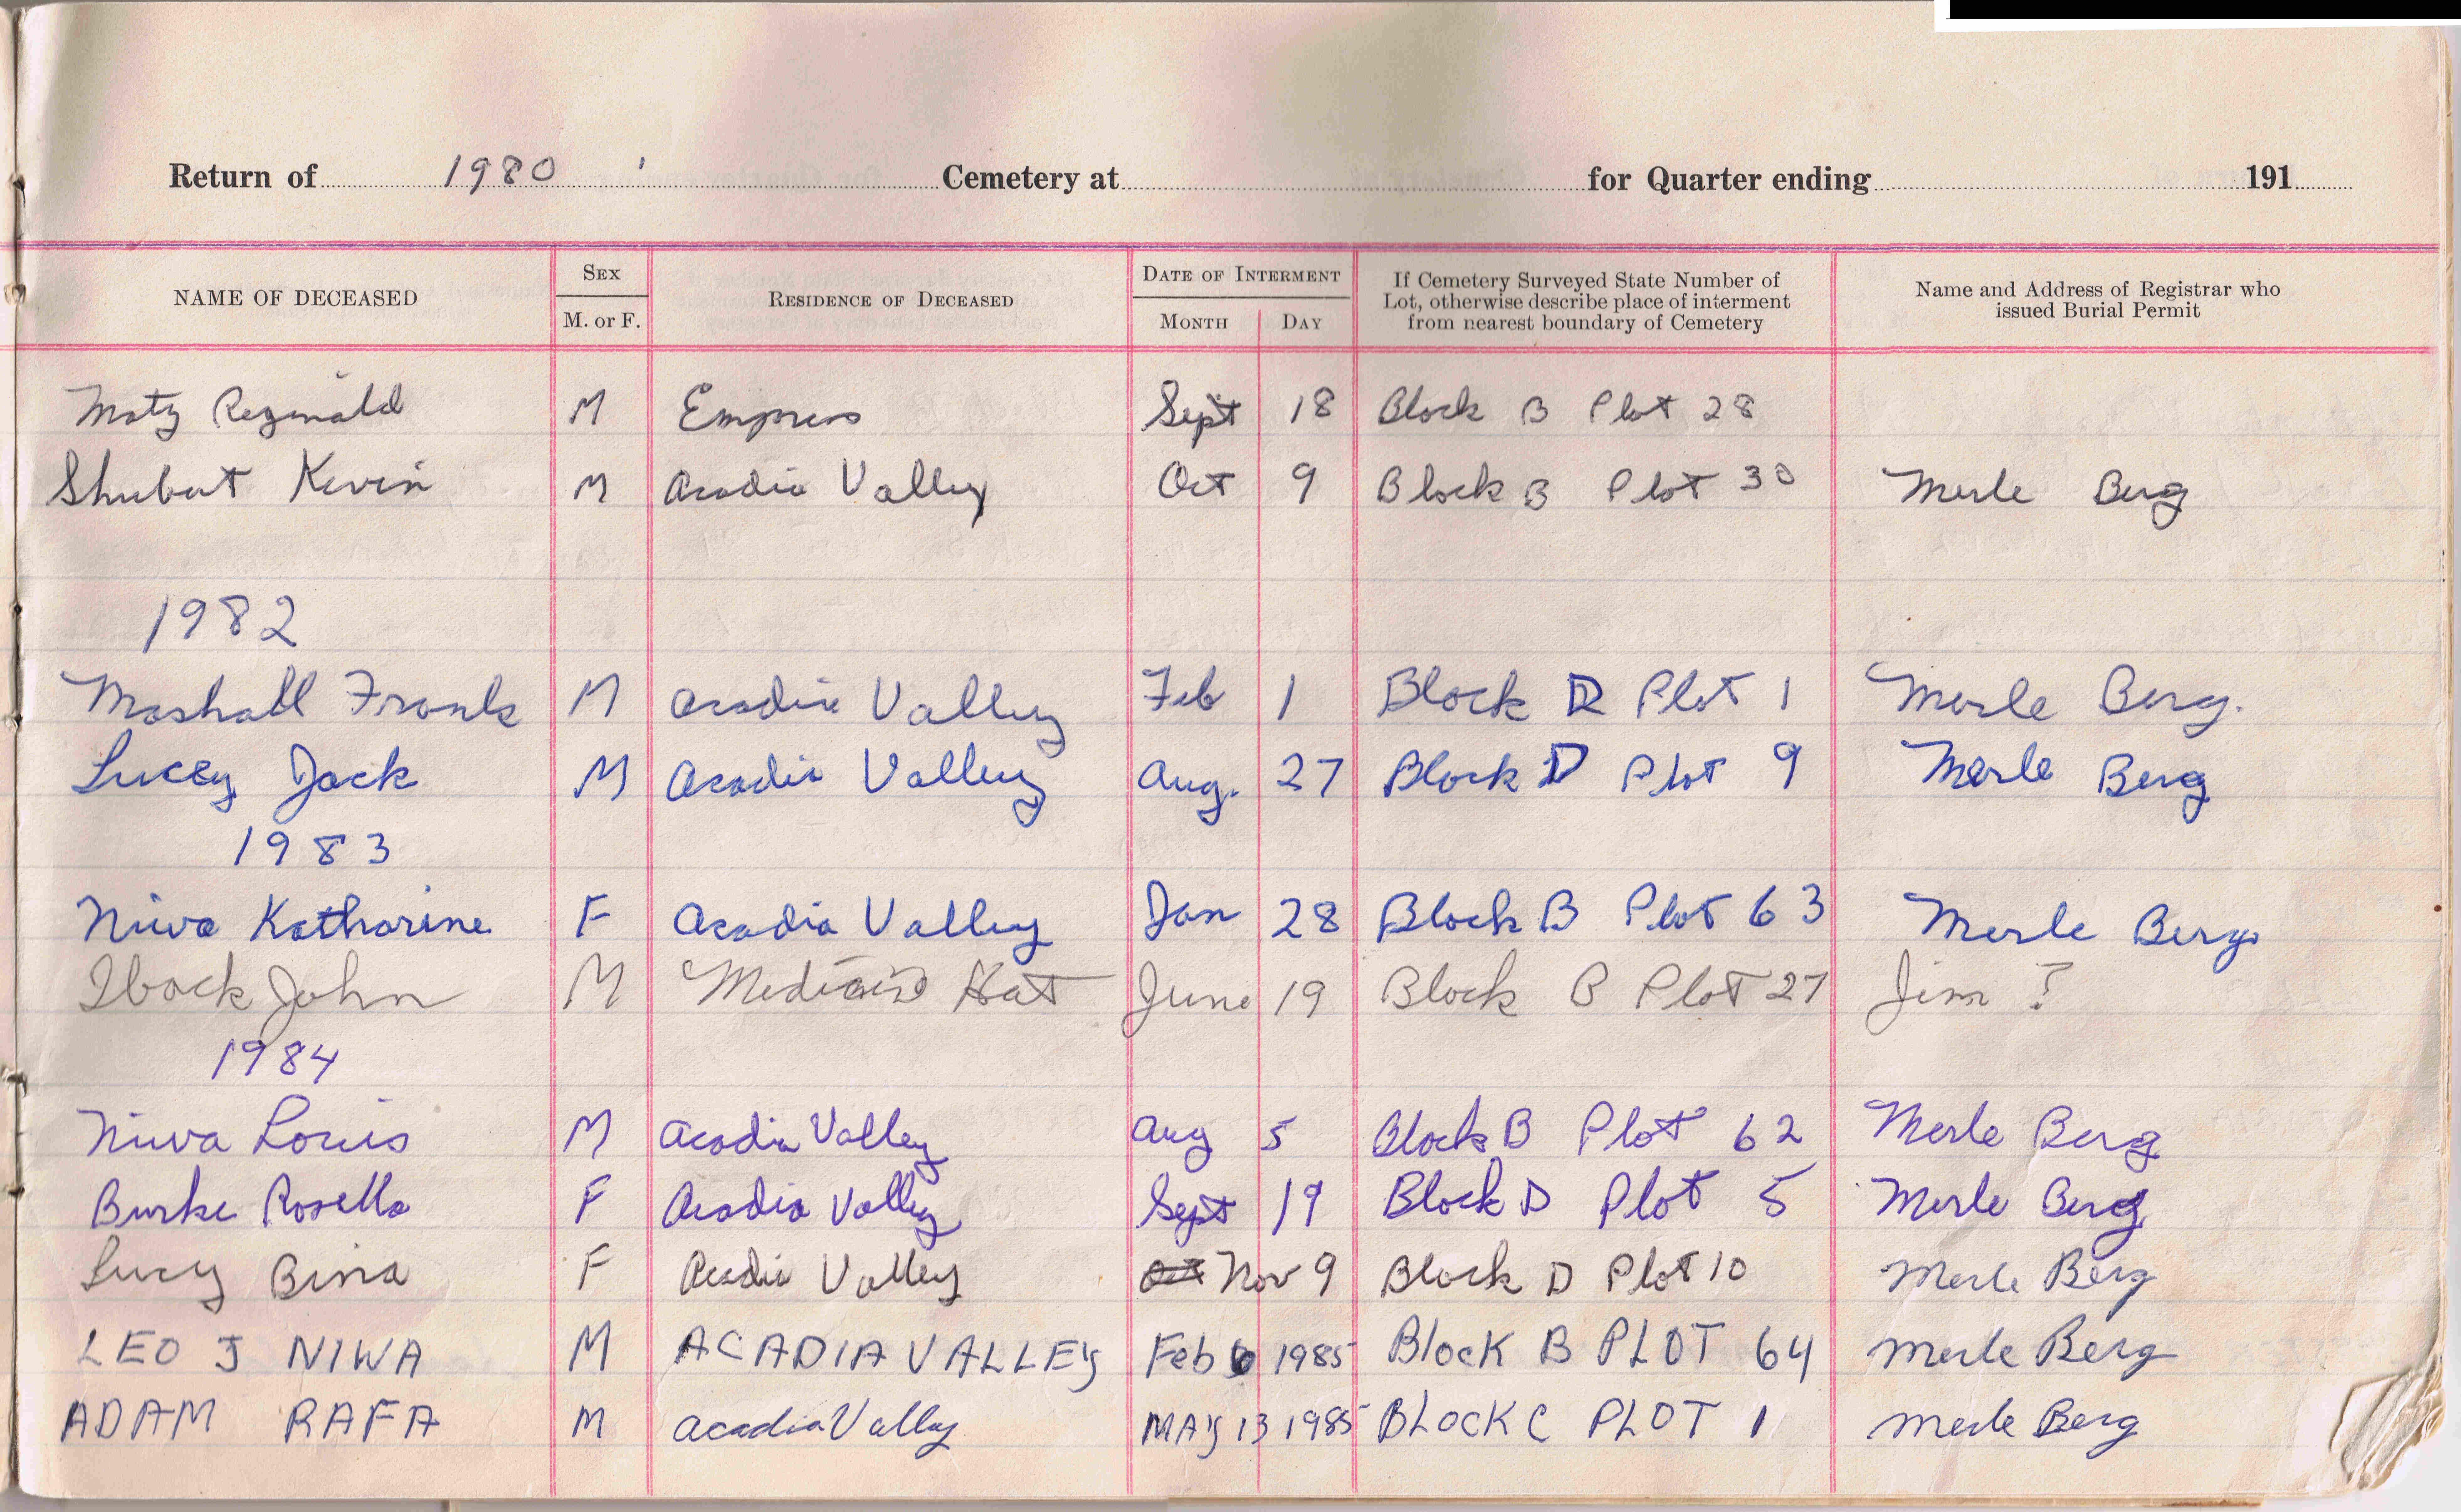 Return of 1980 Cemetery at for Quarter ending 191
NAME OF DECEASED SEX M. or F. RESIDENCE OF DECEASED DATE OF INTERMENT MONTH DAY If Cemetery Surveyed State Number of Lot, otherwise describe place of interment from nearest boundary of Cemetery Name and Address of Registrar who issued Burial Permit
Motz Reginald M Empress Sept 18 Block B Plot 28
Shubert Kevin M Acadia Valley Oct 9 Block B Plot 30 Merle Berg
1982
Mashall Frank M Acadia Valley Feb 1 Block D Plot 1 Merle Berg.
Lucey Jack M Acadia Valley Aug. 27 Block D Plot 9 Merle Berg
1983
Niwa Katharine F Acadia Valley Jan 28 Block B Plot 63 Merle Berg
John M Medicine Hat June 19 Block B Plot 27 Jim ?
1984
Niwa Louis M Acadia Valley Aug 5 Block B Plot 62 Merle Berg
Burke Rosella F Acadia Valley Sept 19 Block D Plot 5 Merle Berg
Lucy Bina F Acadia Valley Nov 9 Block D Plot 10 Merle Berg
LEO J NIWA M ACADIA VALLEY Feb 6 1985 Block B PLOT 64 Merle Berg
ADAM RAFA M Acadia Valley MAY 13 1985 BLOCK C PLOT 1 Merle Berg